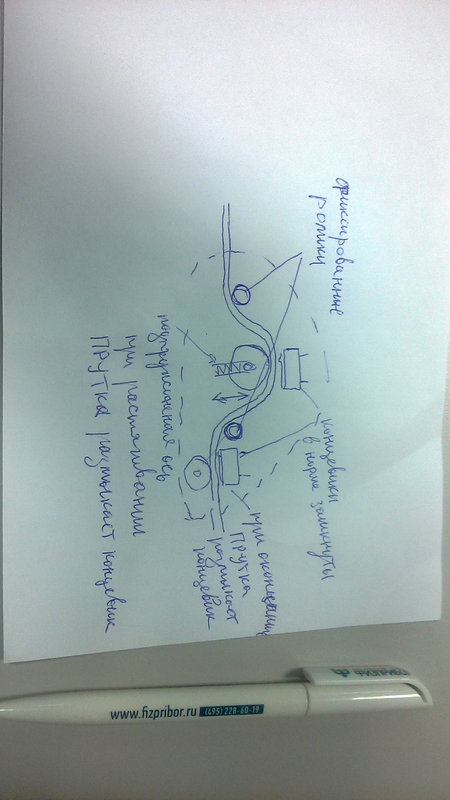 фиксированные
ролики
концевики
в норме замкнуты
подпружиненая ось
при растягивании
прутка размыкает концевик
при окончании
прутка
размыкает
концевик
www.fizpribor.ru (495) 228-60-19